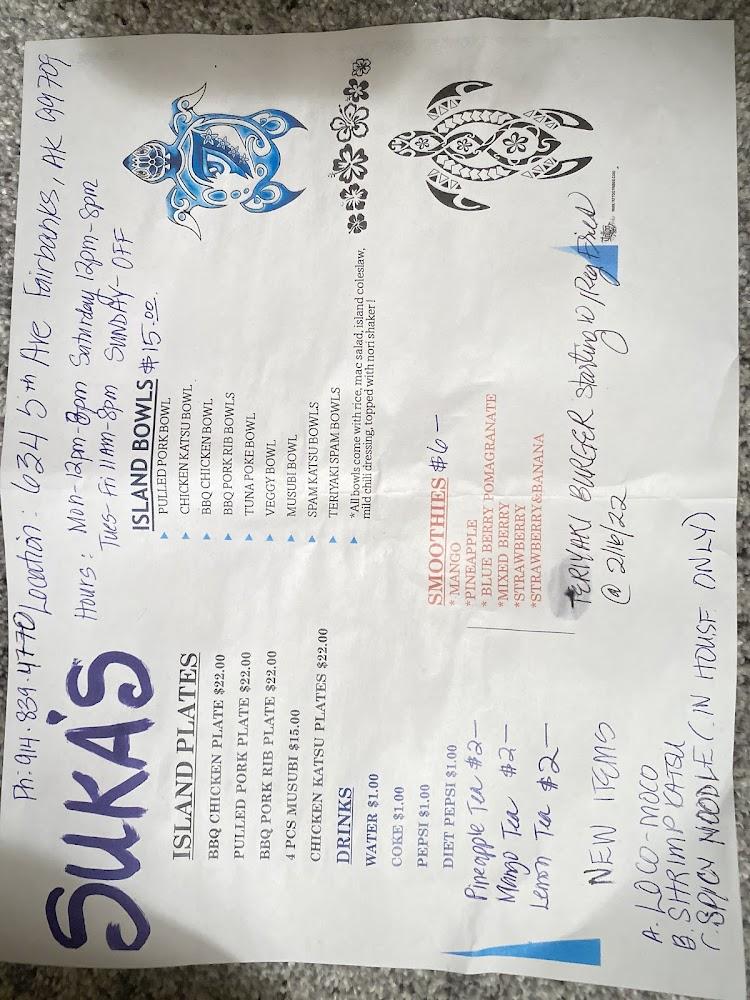 Ph: 914-839-4770 Location: 634 5th Ave Fairbanks, AK 99709
SUKA'S
Hours: Mon-12pm-8pm Saturday 12pm-8pm
Tues-Fri 11Am-8pm SUNDAY-OFF
ISLAND PLATES
BBQ CHICKEN PLATE $22.00
PULLED PORK PLATE $22.00
BBQ PORK RIB PLATE $22.00
4 PCS MUSUBI $15.00
CHICKEN KATSU PLATES $22.00
DRINKS
WATER $1.00
COKE $1.00
PEPSI $1.00
DIET PEPSI $1.00
Pineapple Tea $2-
Mango Tea $2-
Lemon Tea $2-
NEW ITEMS
A. LOCO-MOCO
B. SHRIMP KATSU
C. SPICY NOODLE (IN HOUSE ONLY)
ISLAND BOWLS $15.00
PULLED PORK BOWL
CHICKEN KATSU BOWL
BBQ CHICKEN BOWL
BBQ PORK RIB BOWLS
TUNA POKE BOWL
VEGGY BOWL
MUSUBI BOWL
SPAM KATSU BOWLS
TERIYAKI SPAM BOWLS
*All bowls come with rice, mac salad, island coleslaw,
mild chili dressing, topped with nori shaker!
SMOOTHIES $6-
* MANGO
*PINEAPPLE
* BLUE BERRY POMAGRANATE
*MIXED BERRY
*STRAWBERRY
*STRAWBERRY&BANANA
TERIYAKI BURGER Starting w/Reg Fries
@ 2/16/22